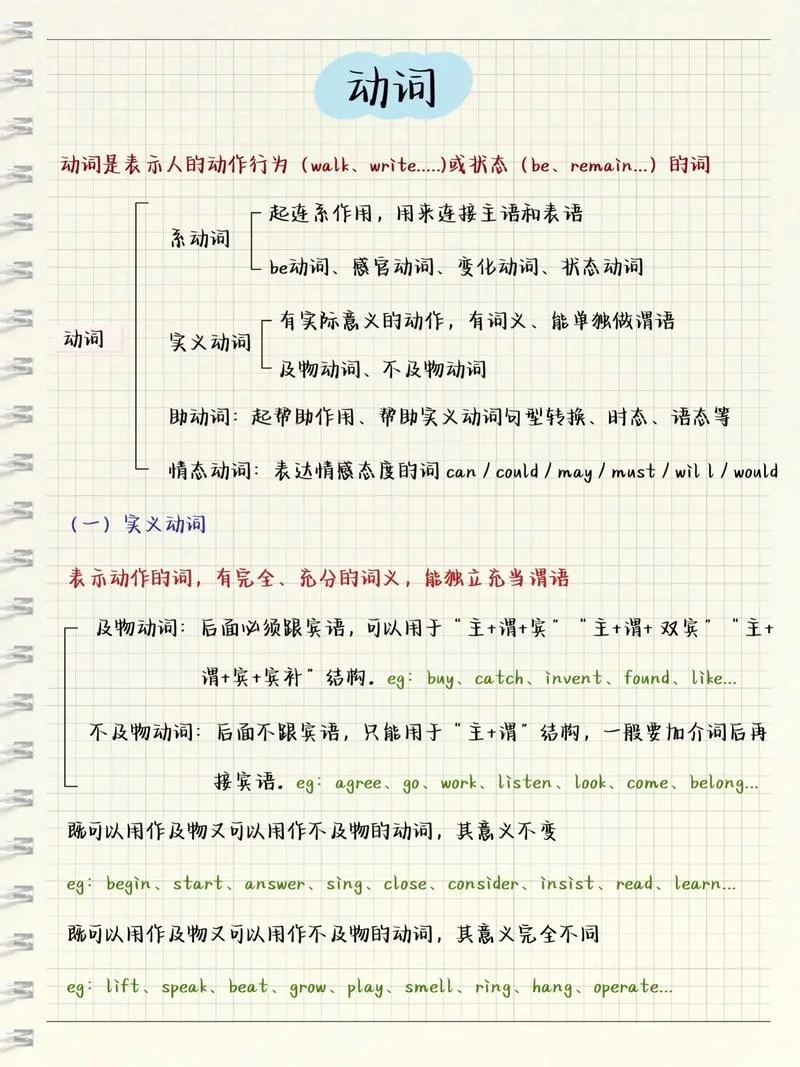 动词
动词是表示人的动作行为（walk、write.....)或状态（be、remain...）的词
起连系作用，用来连接主语和表语
系动词
be动词、感官动词、变化动词、状态动词
有实际意义的动作，有词义、能单独做谓语
动词
实义动词
及物动词、不及物动词
助动词：起帮助作用、帮助实义动词句型转换、时态、语态等
情态动词：表达情感态度的词can/could/may/must/will/would
（一）实义动词
表示动作的词，有完全、充分的词义，能独立充当谓语
及物动词：后面必须跟宾语，可以用于“主+谓+宾”“主+谓+双宾”“主+
谓+宾+宾补”结构。eg：buy、catch、invent、found、like...
不及物动词：后面不跟宾语，只能用于“主+谓”结构，一般要加介词后再
接宾语。eg：agree、go、work、listen、look、come、belong...
既可以用作及物又可以用作不及物的动词，其意义不变
eg：begin、start、answer、sing、close、consider、insist、read、learn...
既可以用作及物又可以用作不及物的动词，其意义完全不同
eg：lift、speak、beat、grow、play、smell、ring、hang、operate...